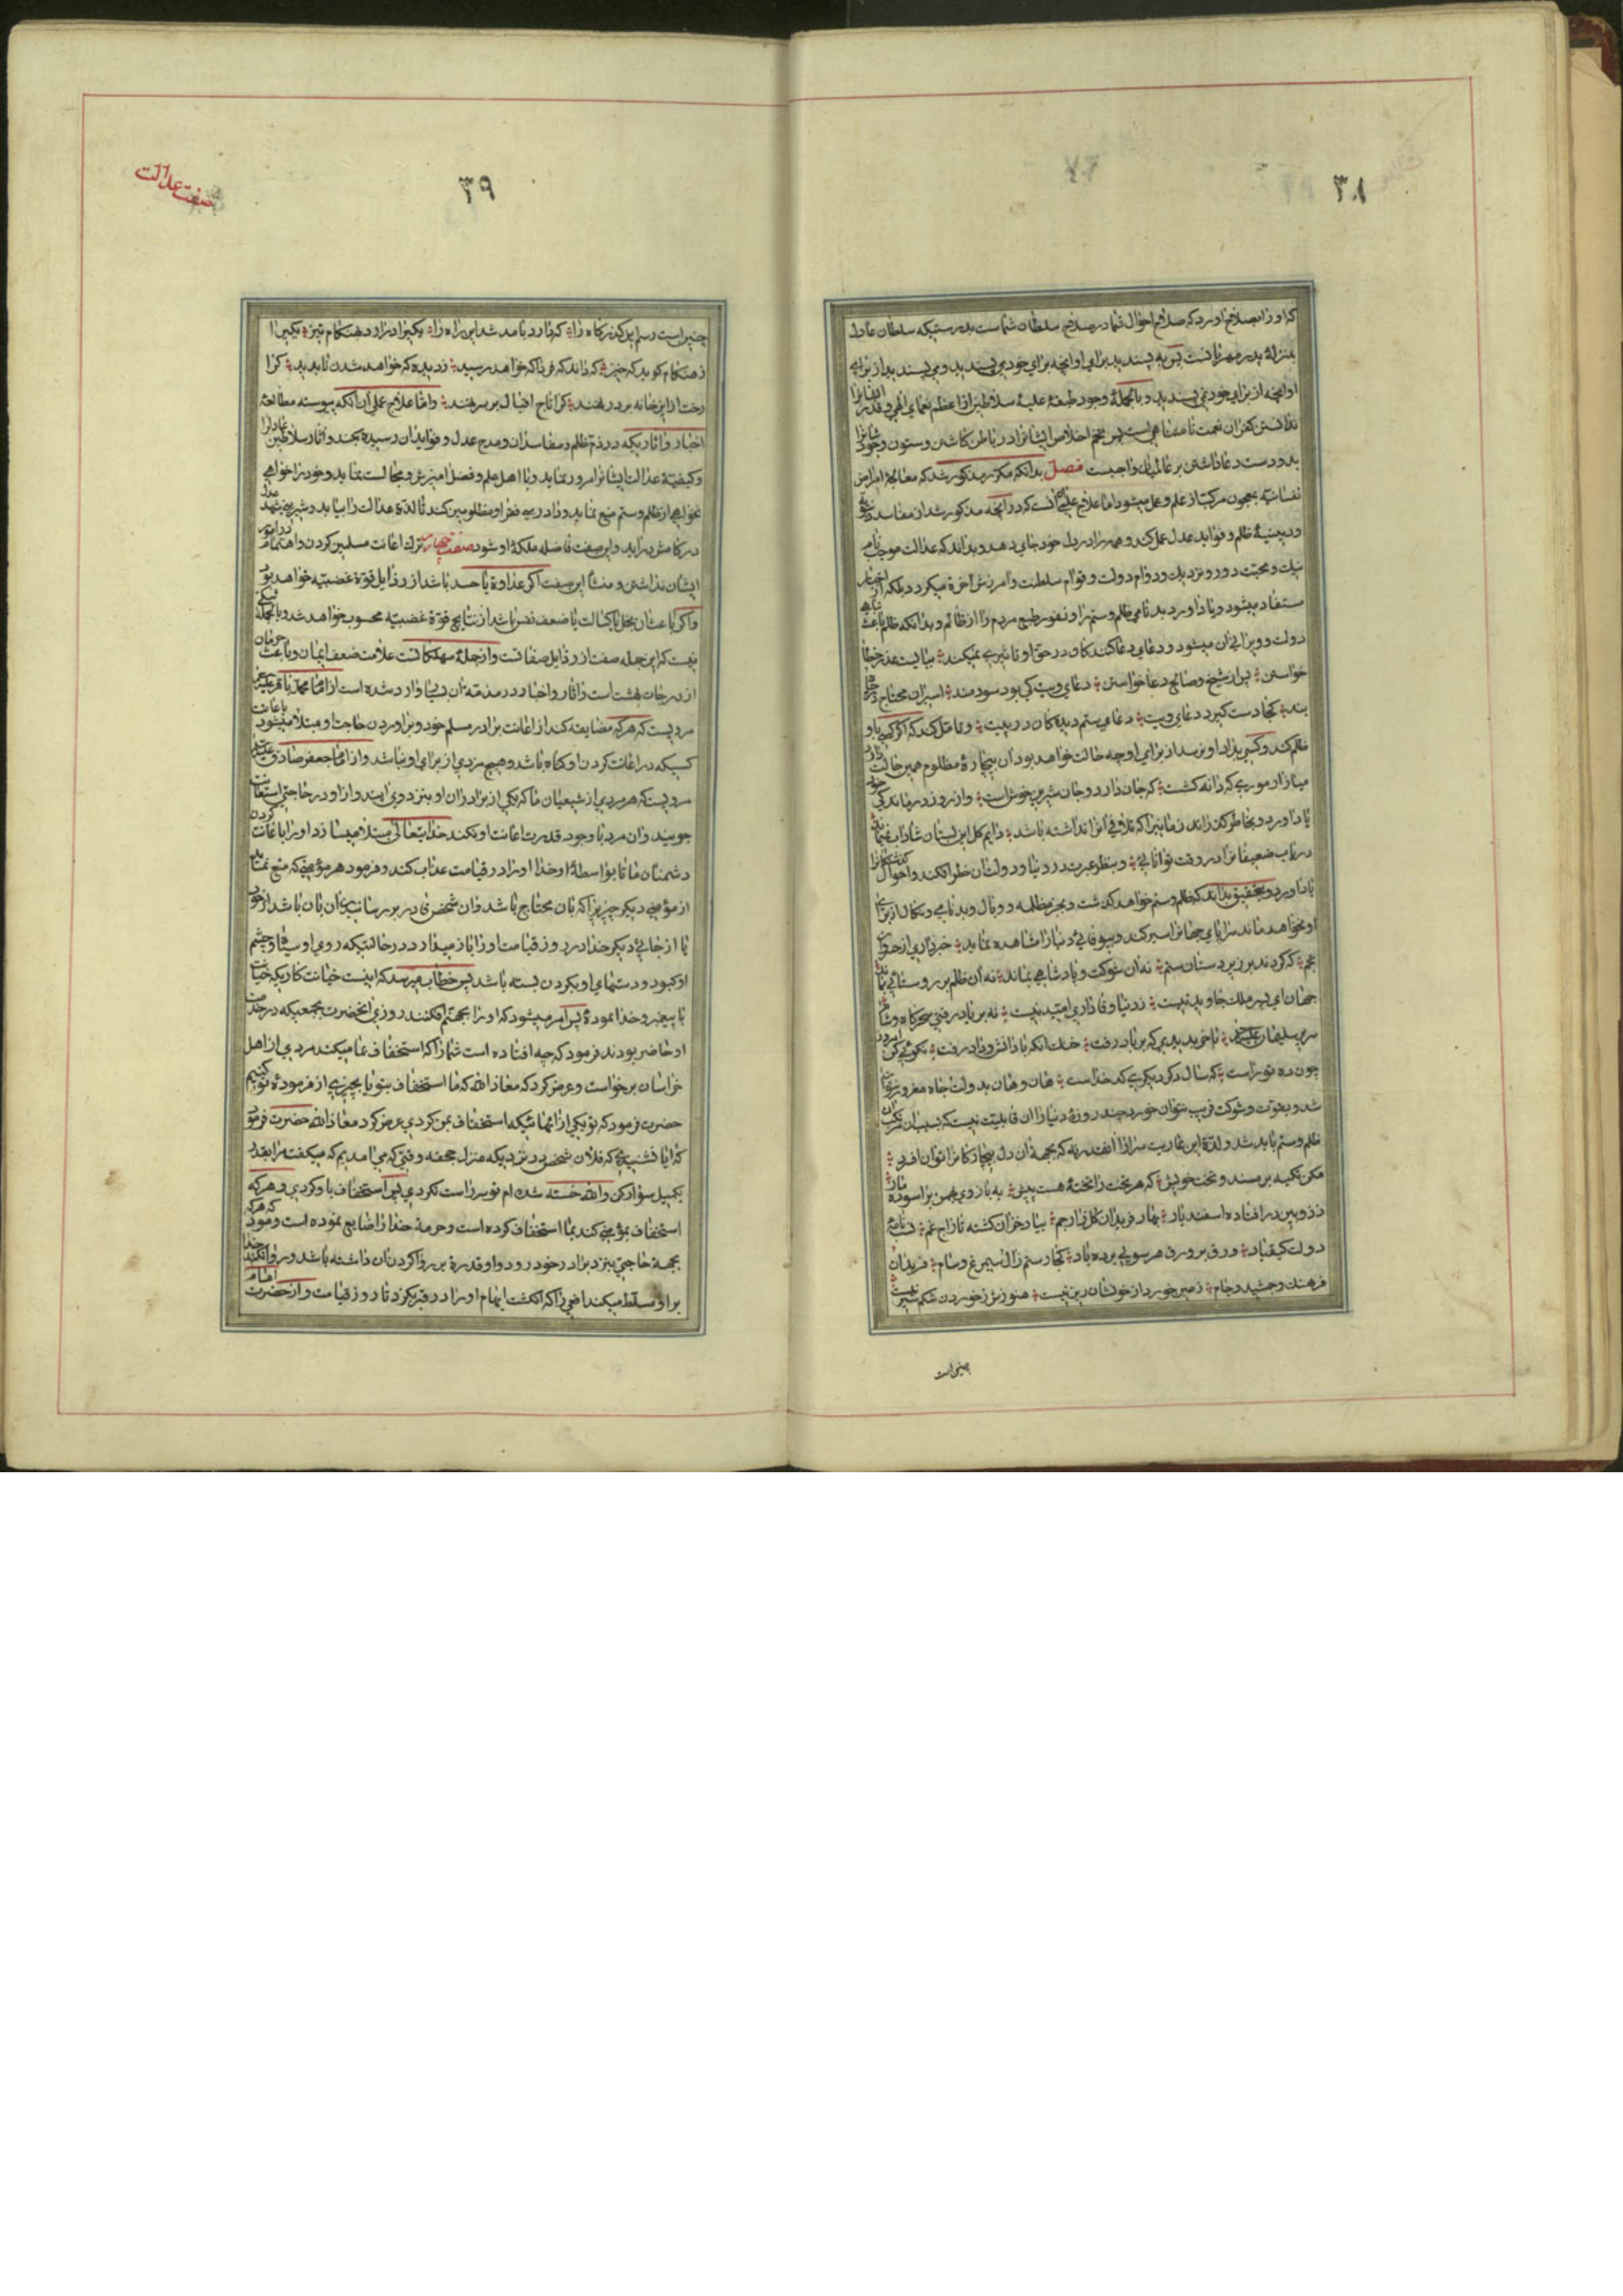 ٣٨
که او را بصلاح اورد که صلاح احوال شما در صلاح سلطان شماست بدرستیکه سلطان عادل
بمنزلهٔ پدر مهربانست پس به پسندید برای او انچه برای خود می پسندید و مپسندید از برای
او انچه از برای خود نمی پسندید وبالجملهٔ وجود طبقهٔ علیهٔ سلاطین از اعظم نعمای الهی و قدر ایشانرا
ندانستن کفران نعمت نامتناهی است پس تخم اخلاص ایشانرا در باطن کاشتن و ستون وجودشانرا
بدو دست دعا داشتن بر عالمیان واجبست فصل بدانکه مکرر مذکور شد که معالجهٔ امراض
نفسانیه بمعجون مرکب از علم و عمل میشود اما علاج علمی انست که در انچه مذکور شد از مفاسد دنیویه
و دینیهٔ ظلم و فواید عدل تامل کند و همه را در دل خود جای دهد و بداند که عدالت موجب نام
نیک و محبت دور و نزدیک و دوام دولت و قوام سلطنت و امرزش اخرة میگردد بلکه از اخبار
مستفاد میشود و یاد اورد بدنامی ظلم و ستم را و نفور طبع مردم را از ظالم و بداند که ظلم باعث تباهی
دولت و ویرانی ان میشود و دعای دعاکنندکان در حق او تاثیری نمیکند میبایست عذر خطا
خواستن پس از شیخ و صالح دعا خواستن دعای ویت کی بود سودمند اسیران محتاج در چاه
بند کجا دست کیرد دعای ویت دعای ستم دیدکان در پیت و تامل کند که اکر کسی باو
ظلم کند و کسی بداد او نرسد از برای او چه حالت خواهد بود ان بیچارهٔ مظلوم همین حالت دارد
میازار موری که دانه کشست که جان دارد و جان شیرین خوش است و از روز درماندکی خود
یاد اورد و بخاطر کذراند زمانیرا که تلافی انرا نداشته باشد دایم کل این بستان شاداب نمیماند
دریاب ضعیفانرا در وقت توانائی و بنظر عبرت در دنیا و دولت ان نظر افکند و احوال کذشتکانرا
یاد اورد و بتحقیق بداند که ظلم و ستم خواهد کذشت و بجز مظلمه و وبال و بدنامی و نکال از برای
او نخواهد ماند سراپای جهانرا سیر کند و بیوفائی دنیا را مشاهده نماید خبرداری از خسروان
عجم که کردند بر زیر دستان ستم نه ان شوکت و پادشاهی بماند نه ان ظلم بر روستائی بماند
جهان ای پسر ملک جاوید نیست ز دنیا وفاداری امید نیست نه بر باد رفتی سحرکاه و شام
سریر سلیمان علیه السلام باخر ندیدی که بر باد رفت خنک انکه با دانش و داد رفت نکوئی کن امروز
چون ده تو راست که سال دکر دیکری کدخداست هان و هان بدولت جاه مغرور نتوان
شد و بقوت و شوکت فریب نتوان خورد چند روزهٔ دنیا را ان قابلیت نیست که بسبب ان مرتکب
ظلم و ستم باید شد و لذة این عاریت سرا را انقدر نه که بجهة ان دل بیچارکانرا توان افسرد
مکن تکیه بر مسند و تخت خویش که هر تخت را تختهٔ هست پیش به بازوی بهمن براسوده مار
ز روبین در افتاده اسفندیار بهار فریدون کلزار جم ببادخزان کشته تاراج غم نسب نامهٔ
دولت کیقباد ورق بر ورق هر سوئی برده باد کجا رستم زال سیمرغ و سام فریدون
فرهنک و جمشید و جام زمین خورد از خوردشان دیر نیست هنوزش ز خوردن شکم سیر نیست
چنین است
٣٩
صفت عدالت
چنین است رسم این کذرکاه را که دارد بامد شد این راه را یکیرا دراورد بهنکام تیز یکیرا
ز هنکام کوید که خیز که داند که فردا که خواهد رسید ز دیده که خواهد شدن ناپدید کرا
رخت از این خانه بر در نهند کرا تاج اقبال بر سر نهند واما علاج عملی ان انکه پیوسته مطالعهٔ
اخبار و اثاریکه در ذم ظلم و مفاسد ان و مدح عدل و فواید ان رسیده بکند و اثار سلاطین عادلرا
وکیفیة عدالت ایشانرا مرور نماید و با اهل علم و فضل امیزش و مجالست نماید و خود را خواهی
نخواهی از ظلم و ستم منع نماید و دادرسی فقرا و مظلومین کند تا لذة عدالت را بیابد و شیرینی شهد عدل
در کامش دراید و این صفت فاضله ملکهٔ او شود صفت چهارم ترک اعانت مسلمین کردن و اهتمام در امور
ایشان نداشتن و منشا این صفت اکر عداوة یا حسد باشد از رذایل قوة غضبیه خواهد بود
واکر باعث ان بخل یا کسالت یا ضعف نفس باشد از نتایج قوة غضبیه محسوب خواهد شد و بالجمله شکی
نیست که این جمله صفت از رذایل صفاتست و از جملهٔ مهلکاتست علامت ضعف ایمان و باعث حرمان
از درجات بهشت است و اثار و اخبار در مذمة ان بسیار وارد شده است از امام محمد باقر علیه السلام
مرویست که هر که مضایقه کند از اعانت برادر مسلم خود و براوردن حاجت او مبتلا میشود باعانت
کسیکه در اعانت کردن او کناه باشد و هیچ مزدی از برای او نباشد و از امام جعفر صادق علیه السلام
مرویست که هر مردی از شیعیان ما که یکی از برادران او بنزد وی ایند و از او در حاجتی استعانت
جویند و ان مرد با وجود قدرت اعانت او نکند خدایتعالی مبتلا میسازد او را باعانت کردن
دشمنان ما تا بواسطهٔ او خدا او را در قیامت عذاب کند و فرمود هر مؤمنی که منع نماید
از مؤمنی دیکر چیزیرا که بان محتاج باشد و ان شخص قادر بر رسانیدن ان بان باشد از خود
یا از جائی دیکر خدا در روز قیامت او را باز میدارد در حالتیکه روی او سیاه و چشم
او کبود و دستهای او بکردن بسته باشد پس خطاب میرسد که اینست خیانت کاریکه خیانت
با پیغمبر و خدا نمودهٔ پس امر میشود که او را بجهنم افکنند روزی انحضرت بجمعیکه در خدمت
او حاضر بودند فرمود که چه افتاده است شما را که استخفاف بما میکنید مردی از اهل
خراسان برخواست و عرض کرد که معاذالله که ما استخفاف بتو یا بچیزی از فرمودهٔ تو کنیم
حضرت فرمود که تو یکی از انهائیکه استخفاف بمن کردی عرض کرد معاذالله حضرت فرمود
که ایا نشنیدی که فلان شخص در نزدیکه منزل جحفه وقتی که می امدیم که میکفت مرا بقدر
یکمیل سوار کن والله خسته شده ام تو سر راست نکردی پس استخفاف باو کردی و هر که
استخفاف بمؤمنی کند بما استخفاف کرده است و حرمة خدا را ضایع نموده است و فرمود که هر که
بجهة حاجتی بنزد برادر خود رود و او قدرة بر روا کردن ان داشته باشد و روا نکند خدا
بر او مسلط میکند افعی را که انکشت ابهام او را در قبر بکزد تا روز قیامت و از حضرت امام